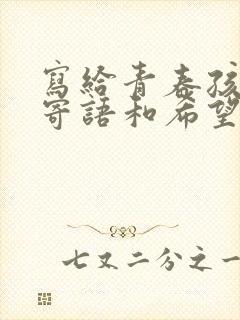 寫給青春孩
寄語和希望
七又二分之一